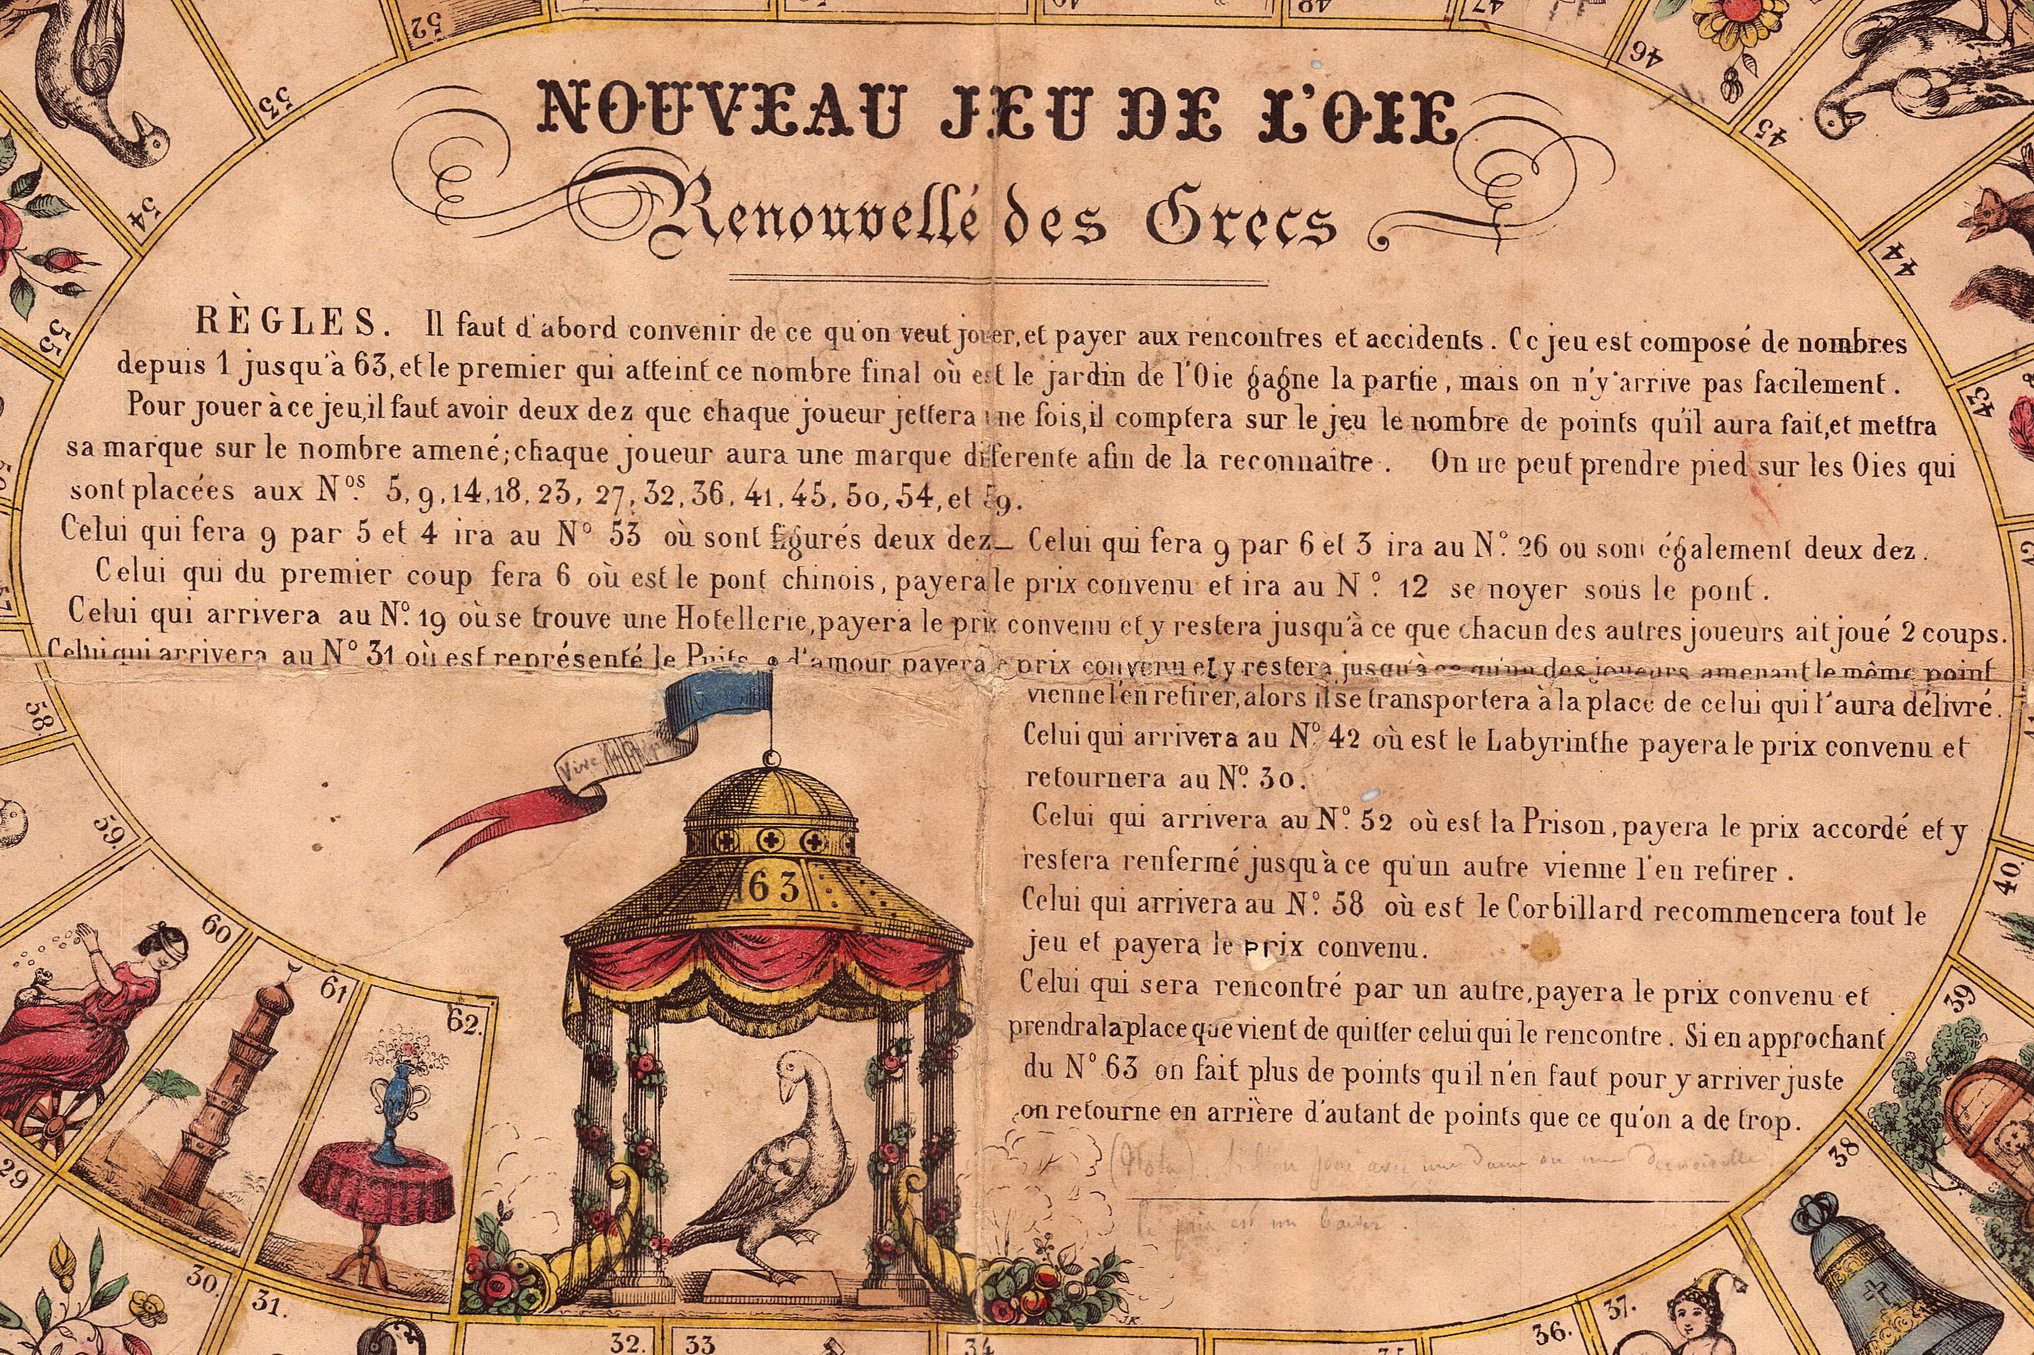 52
49
48
47
46
53
45
54
44
55
43
42
57
58
40
59
39
60
61
62
38
63
29
30
31
32
33
34
35
36
37
NOUVEAU JEU DE L'OIE
Renouvellé des Grecs
RÈGLES. Il faut d'abord convenir de ce qu'on veut jouer, et payer aux rencontres et accidents. Ce jeu est composé de nombres
depuis 1 jusqu'à 63, et le premier qui atteint ce nombre final où est le jardin de l'Oie gagne la partie, mais on n'y arrive pas facilement.
Pour jouer à ce jeu, il faut avoir deux dez que chaque joueur jettera une fois, il comptera sur le jeu le nombre de points qu'il aura fait, et mettra
sa marque sur le nombre amené; chaque joueur aura une marque diferente afin de la reconnaitre. On ne peut prendre pied sur les Oies qui
sont placées aux Nos. 5, 9, 14, 18, 23, 27, 32, 36, 41, 45, 50, 54, et 59.
Celui qui fera 9 par 5 et 4 ira au No 53 où sont figurés deux dez_ Celui qui fera 9 par 6 et 3 ira au No. 26 ou sont également deux dez.
Celui qui du premier coup fera 6 où est le pont chinois, payera le prix convenu et ira au No. 12 se noyer sous le pont.
Celui qui arrivera au No. 19 où se trouve une Hotellerie, payera le prix convenu et y restera jusqu'à ce que chacun des autres joueurs ait joué 2 coups.
Celui qui arrivera au No 31 où est représenté le Puits d'amour payera le prix convenu et y restera jusqu'à ce qu'un des joueurs amenant le même point
vienne l'en retirer, alors il se transportera à la place de celui qui l'aura délivré.
Celui qui arrivera au No. 42 où est le Labyrinthe payera le prix convenu et
retournera au No. 30.
Celui qui arrivera au No. 52 où est la Prison, payera le prix accordé et y
restera renfermé jusqu'à ce qu'un autre vienne l'en retirer.
Celui qui arrivera au No. 58 où est le Corbillard recommencera tout le
jeu et payera le prix convenu.
Celui qui sera rencontré par un autre, payera le prix convenu et
prendra la place que vient de quitter celui qui le rencontre. Si en approchant
du No 63 on fait plus de points qu'il n'en faut pour y arriver juste
on retourne en arrière d'autant de points que ce qu'on a de trop.
(Nota) Si l'on joue avec une Dame ou une Demoiselle
le prix est un baiser.
Vive
JK